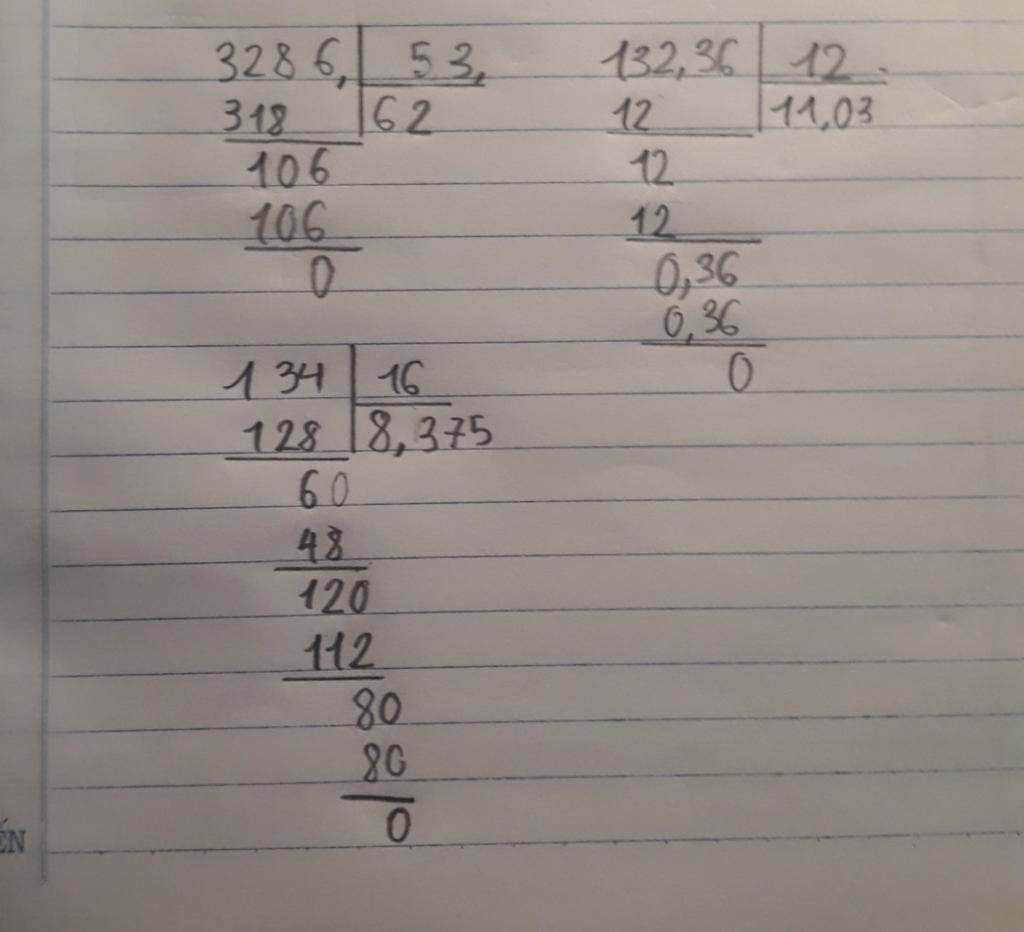 3286, 53,
318 62
106
106
0
132,36 12
12 11,03
12
12
0,36
0,36
0
134 16
128 8,375
60
48
120
112
80
80
0
ÉN